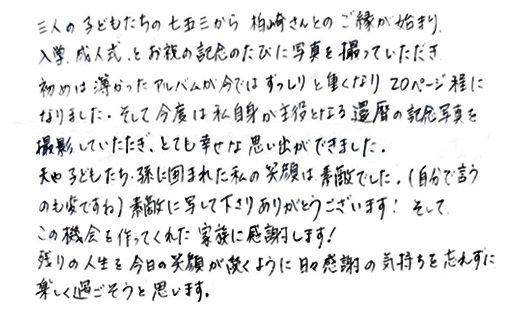 三人の子どもたちの七五三から柏崎さんとのご縁が始まり、
入学、成人式、とお祝の記念のたびに写真を撮っていただき
初めは薄かったアルバムが今ではずっしりと重くなり20ページ程に
なりました。そして今度は私自身が主役となる還暦の記念写真を
撮影していただき、とても幸せな思い出ができました。
夫や子どもたち・孫に囲まれた私の笑顔は素敵でした。(自分で言う
のも変ですね)素敵に写して下さりありがとうございます！そして
この機会を作ってくれた家族に感謝します！
残りの人生も今日の笑顔が続くように日々感謝の気持ちを忘れずに
楽しく過ごそうと思います。